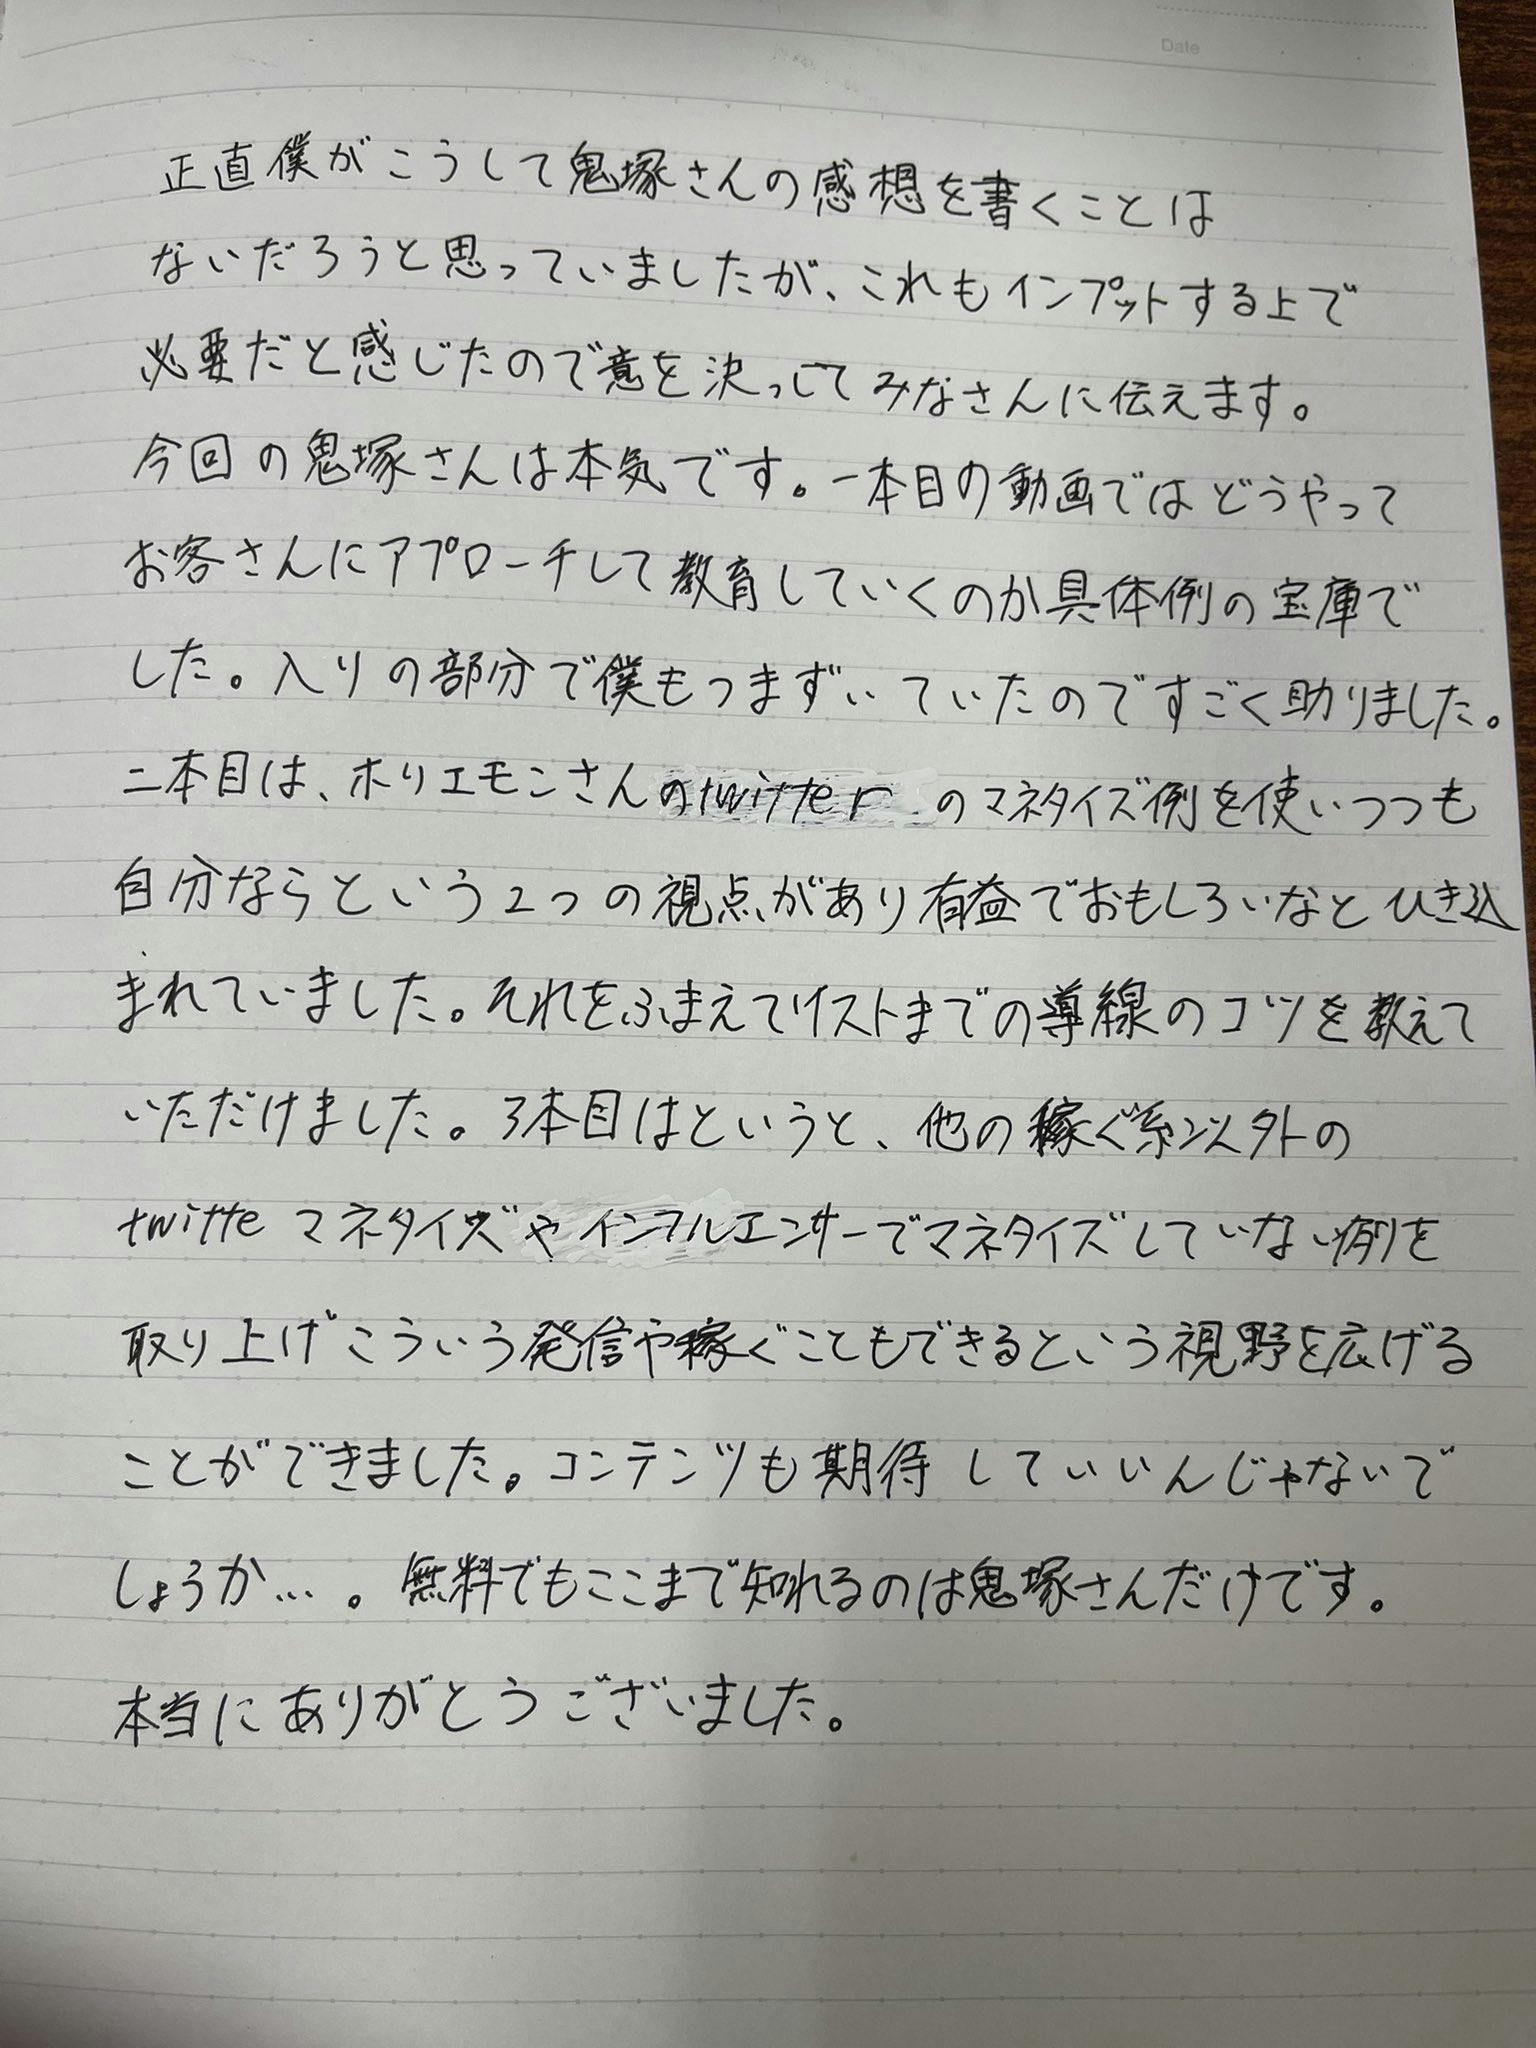 Date
正直僕がこうして鬼塚さんの感想を書くことは
ないだろうと思っていましたが、これもインプットする上で
必要だと感じたので意を決っしてみなさんに伝えます。
今回の鬼塚さんは本気です。一本目の動画ではどうやって
お客さんにアプローチして教育していくのか具体例の宝庫で
した。入りの部分で僕もつまずいていたのですごく助りました。
二本目は、ホリエモンさんのtwitterのマネタイズ例を使いつつも
自分ならという2つの視点があり有益でおもしろいなとひき込
まれていました。それをふまえてリストまでの導線のコツを教えて
いただけました。3本目はというと、他の稼ぐ系以外の
twitteマネタイズやインフルエンサーでマネタイズしていない例を
取り上げこういう発信や稼ぐこともできるという視野を広げる
ことができました。コンテンツも期待していいんじゃないで
しょうか…。無料でもここまで知れるのは鬼塚さんだけです。
本当にありがとうございました。